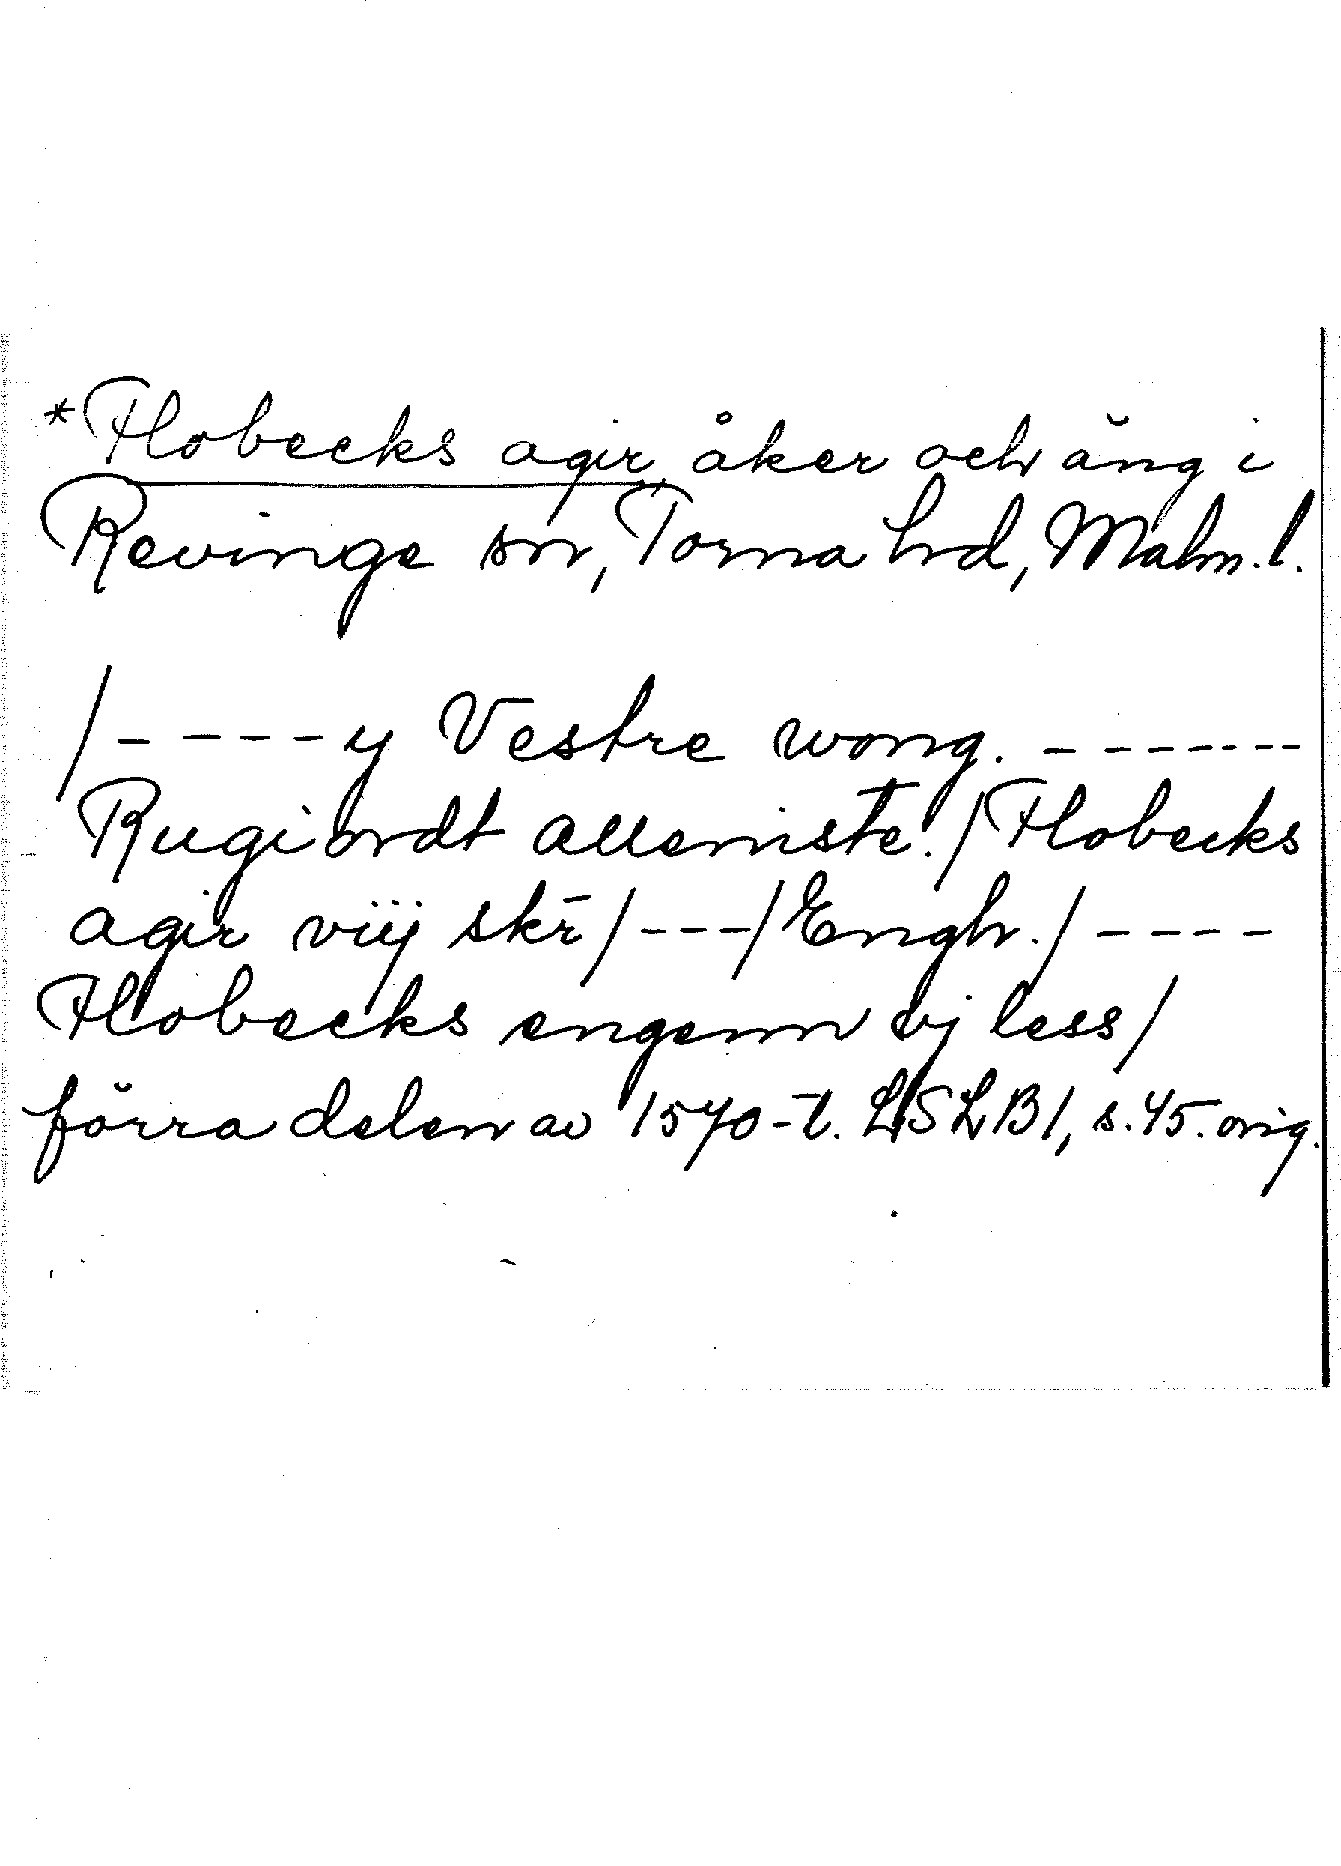 *Flobecks agir, åker och äng i
Revinge sn, Torna hrd, Malm. l.
/- - - - - y Vestre wong. - - - - - - -
Rugiordt alleniste./Flobecks
agir viij skr̄/- - -/Engh./- - - -
Flobecks engenn vj less/
förra delen av 1570-t. LSLB1, s. 45. orig.